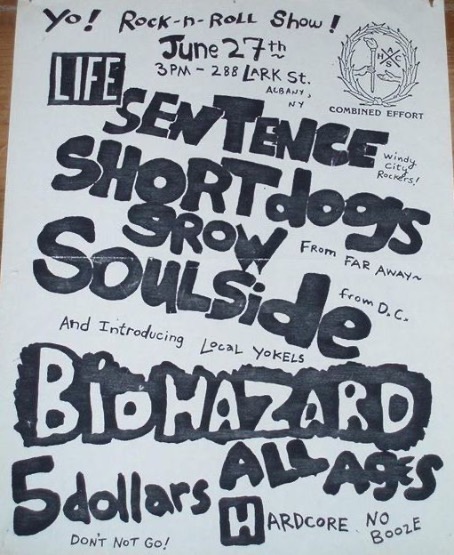 Yo! Rock-n-Roll Show!
June 27th
3PM - 288 LARK St.
ALBANY, NY
H A C S
COMBINED EFFORT
LIFE SENTENCE
Windy City Rockers!
SHORT dogs grow
From FAR AWAY~
SOULSide
from D.C.
And Introducing Local YOKELS
BIOHAZARD
5 dollars
ALL AGES
HARDCORE NO BOOZE
DON'T NOT GO!